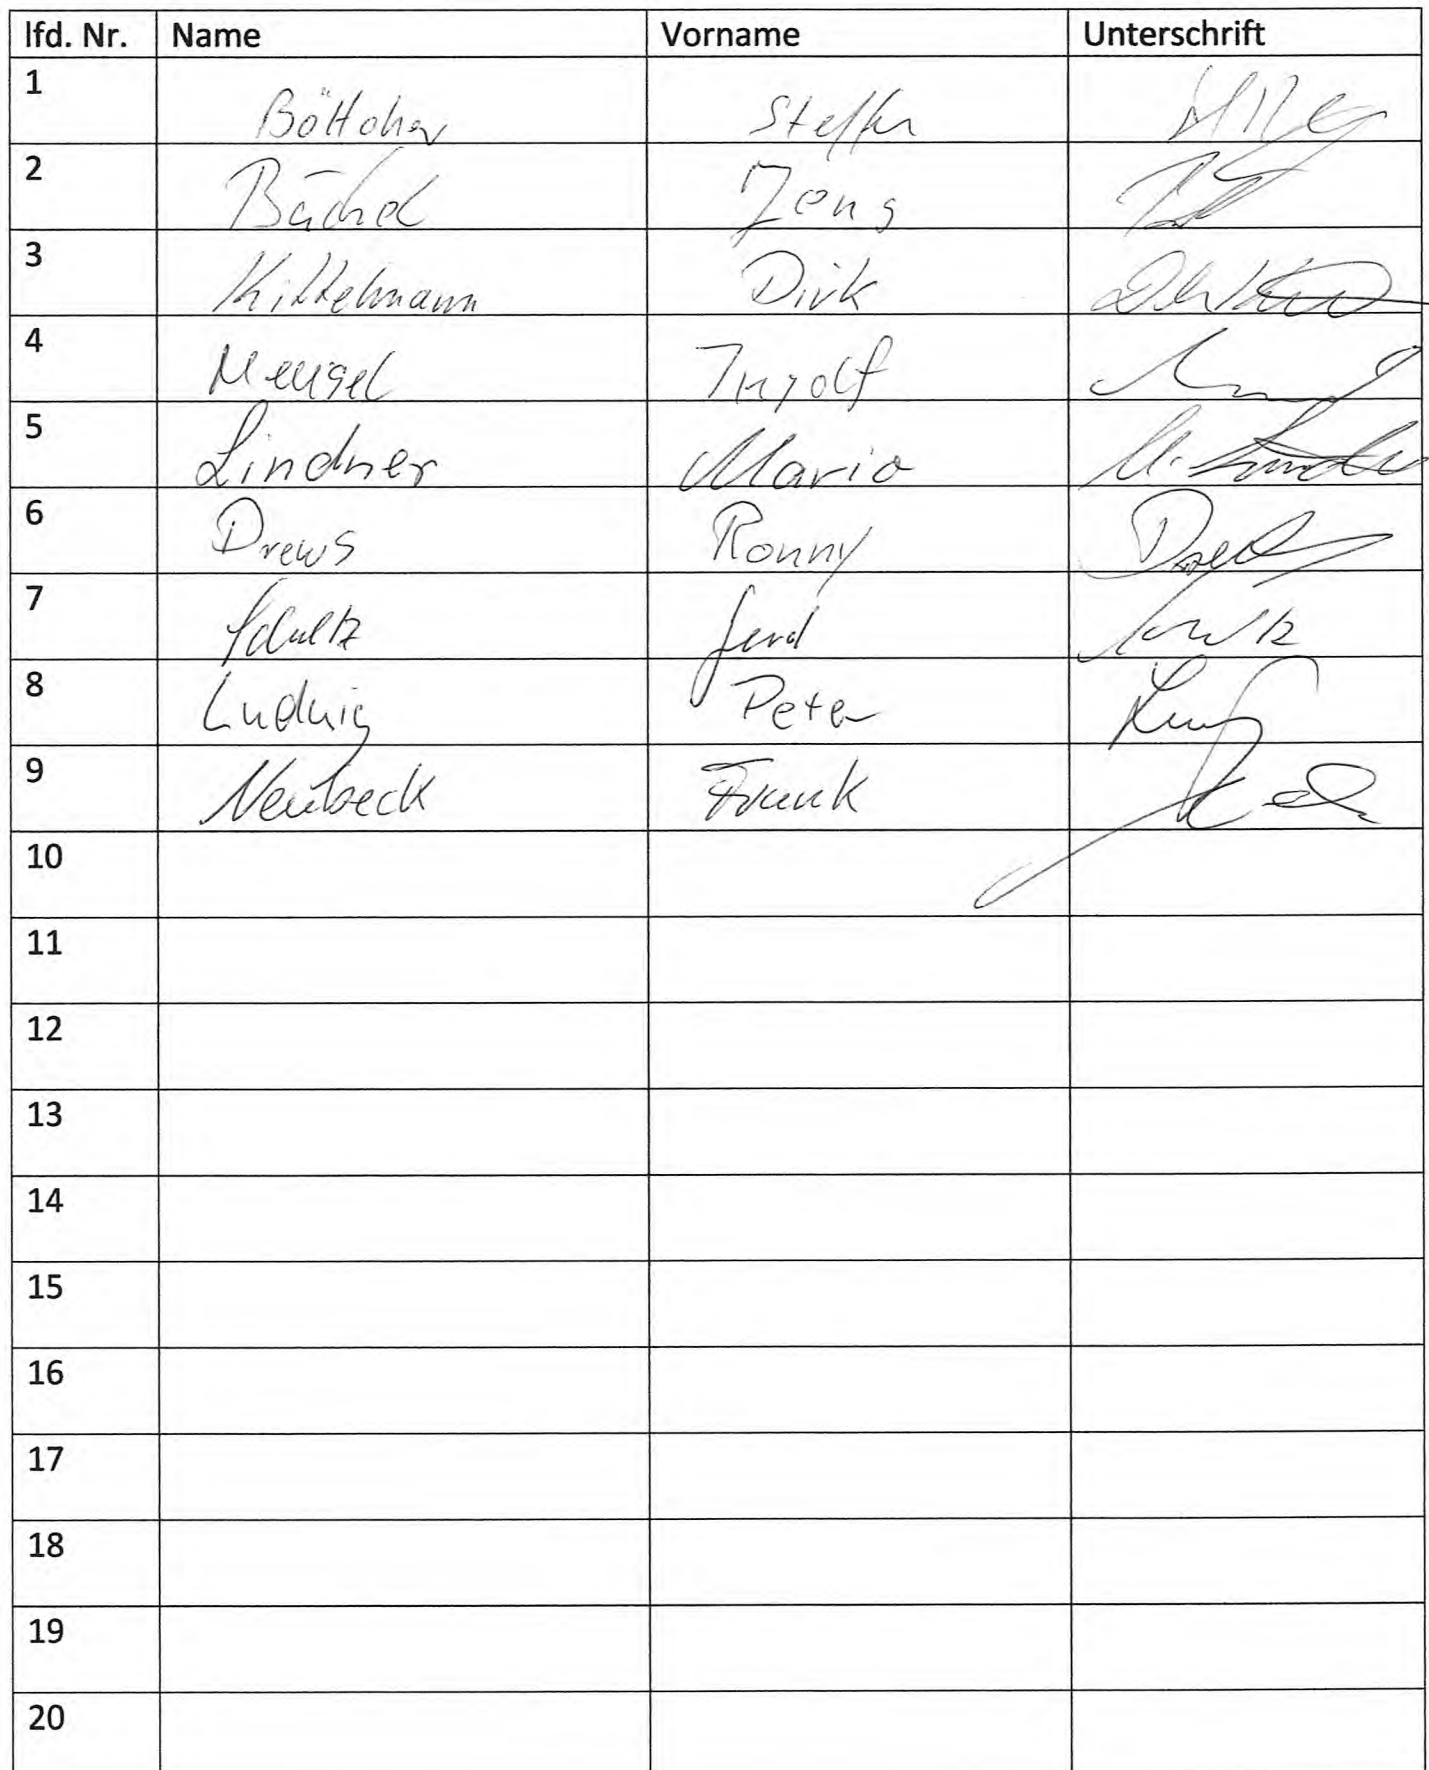 lfd. Nr. Name Vorname Unterschrift
1 Böttcher Steffen
2 Büchel Jens
3 Kittelmann Dirk
4 Mengel Ingolf
5 Lindner Mario M. Lindner
6 Drews Ronny
7 Schultz Gerd Schultz
8 Ludwig Peter
9 Neubeck Frank
10
11
12
13
14
15
16
17
18
19
20